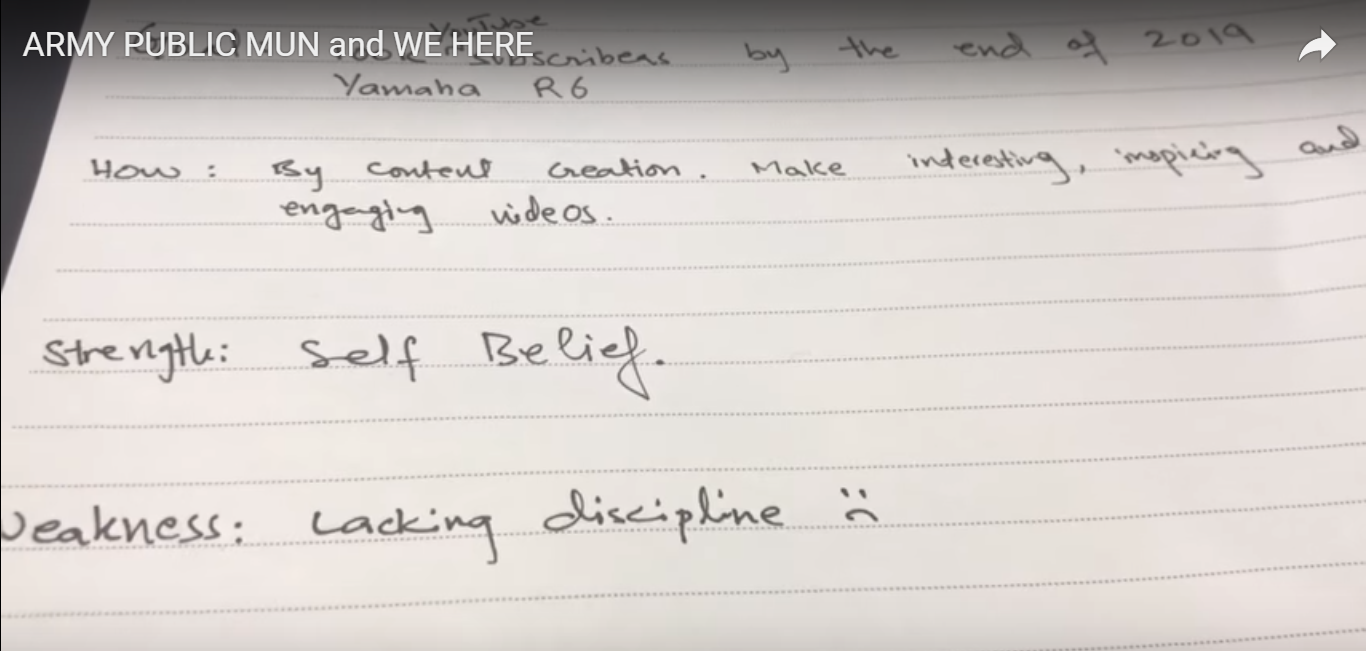 ARMY PUBLIC MUN and WE HERE
YouTube
Subscribers by the end of 2019
Yamaha R6
How : By content creation. Make interesting, inspiring and
engaging videos.
Strength: Self Belief.
Weakness: Lacking discipline :(